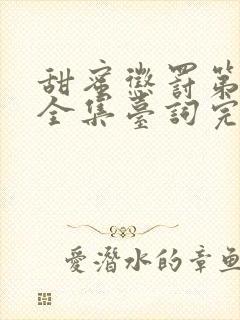 甜蜜懲罰第
全集臺詞完
愛潛水的章魚